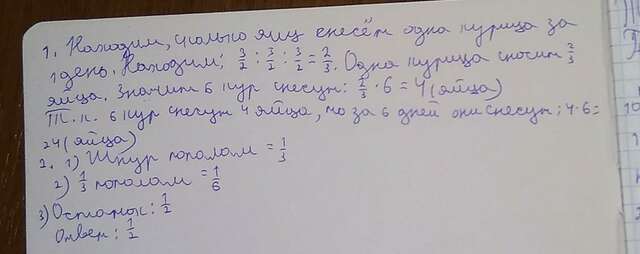 1. Находим, сколько яиц снесёт одна курица за
1 день. Находим: 3/2 : 3/2 : 3/2 = 2/3. Одна курица сносит 2/3
яйца. Значит 6 кур снесут: 2/3 · 6 = 4 (яйца)
Т.к. 6 кур снесут 4 яйца, то за 6 дней они снесут: 4·6=
24 (яйца)
2. 1) Шнур пополам = 1/3
2) 1/3 пополам = 1/6
3) Остаток: 1/2
Ответ: 1/2